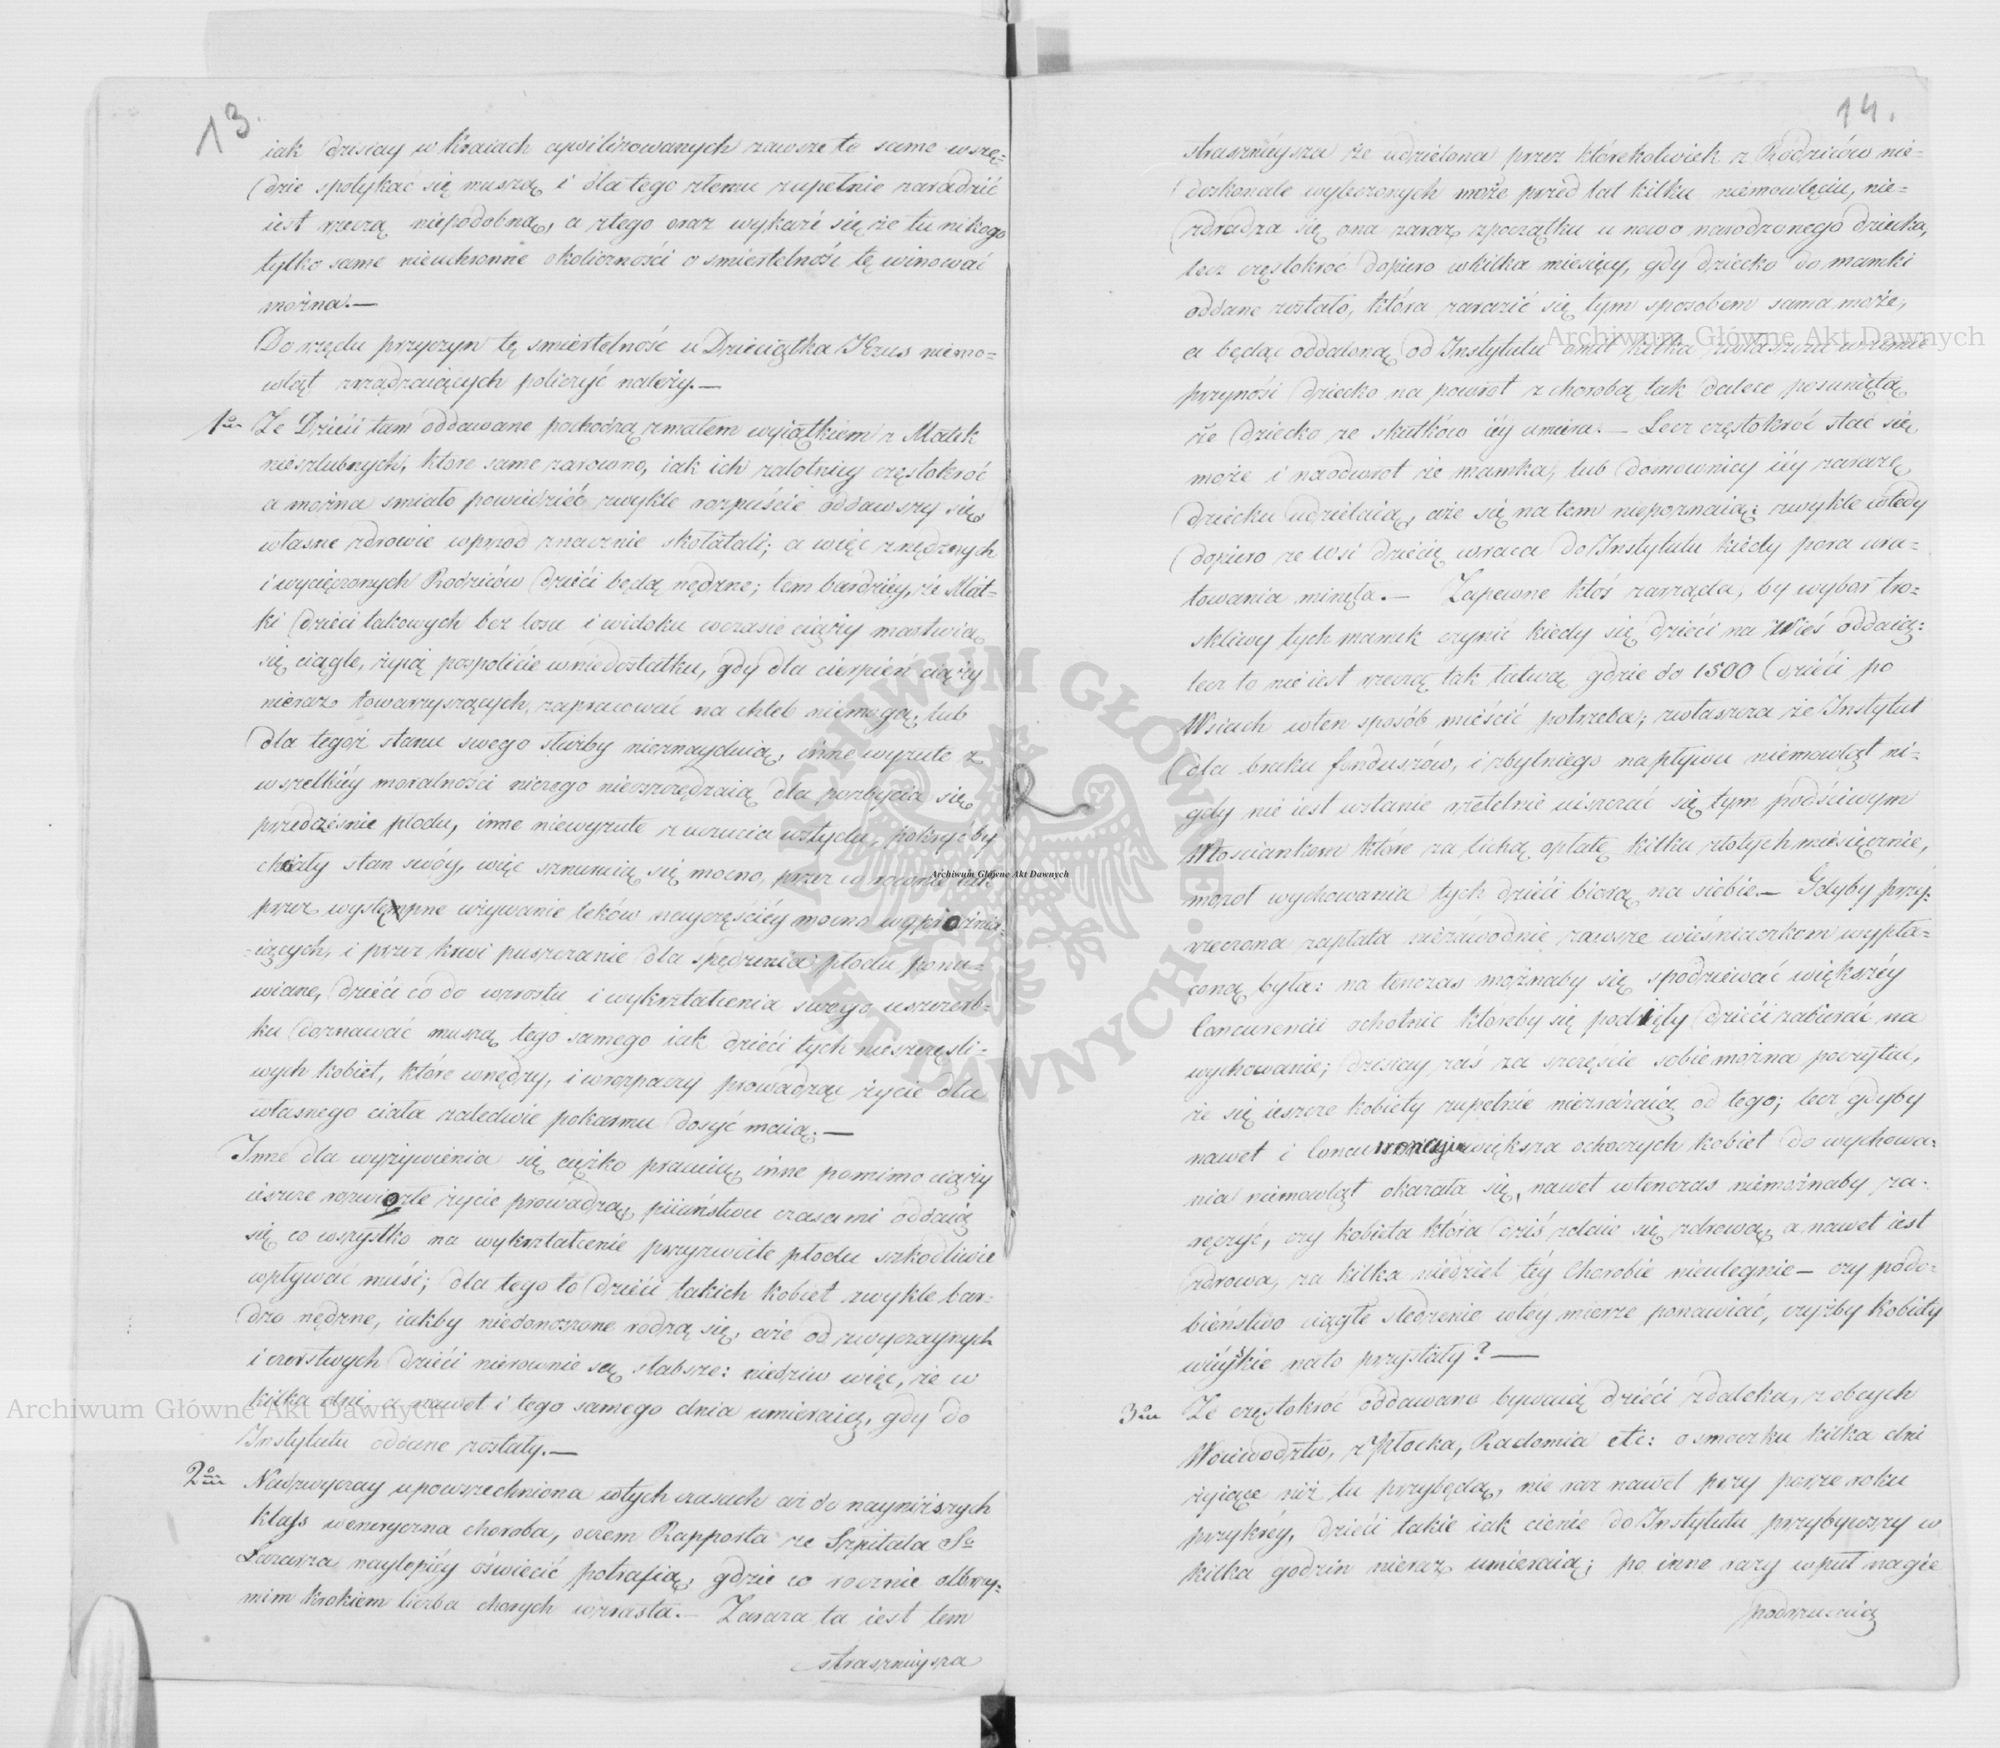 13.
iak dzisiay w kraiach cywilizowanych zawsze te same wszę-
dzie spotykać się muszą i dla tego złemu zupełnie zaradzić
iest rzeczą niepodobną, a ztego oraz wykaże się że tu nikogo
tylko same nieuchronne okoliczności o smiertelność tę winować
można.—
Do rzędu przyczyn tę smiertelność u Dzieciątka JEzus niemo-
wląt zrządzaiących policzyć należy.—
1o Ze Dzieci tam oddawane pochodzą zmałem wyiątkiem z Matek
nieszlubnych, które same zarowno, iak ich zalotnicy częstokroć
a można smiało powiedzieć zwykle rozpuście oddawszy się,
własne zdrowie wprzod znacznie skołatali; a więc znędznych
i wycięczonych Rodziców dzieci będą nędzne; tem bardziéy, że Mat-
ki dzieci takowych bez losu i widoku wczasie ciąży martwią
się ciągle, żyią pospolicie wniedostatku, gdy dla cierpień ciąży
nieraz towarzyszących, zapracować na chleb niemogą; lub
dla tegoż stanu swego służby nieznayduią, inne wyzute z
wszelkiéy moralności niczego nieoszczędzaią dla pozbycia się
przedcześnie płodu, inne niewyzute z uczucia wstydu, pokryć by
chciały stan swóy, więc sznuruią się mocno, przez co rownie iak
przez występne używanie leków nayczęściéy mocno wyprożnia-
-iących, i przez krwi puszczanie dla spędzenia płodu pona-
wiane, dzieci co do wzrostu i wykształcenia swego uszczerb-
ku doznawać muszą tego samego iak dzieci tych nieszczęśli-
wych kobiet, które wnędzy, i wrozpaczy prowadząc życie dla
własnego ciała zaledwie pokarmu dosyć maią.—
Inne dla wyżywienia się ciężko pracuią, inne pomimo ciąży
ieszcze rozwiozłe życie prowadzą, piiaństwu czasami oddaią
się co wszystko na wykształcenie przyzwoite płodu szkodliwie
wpływać musi; dla tego to dzieci takich kobiet zwykle bar-
dzo nędzne, iakby niedonoszone rodzą się, a że od zwyczaynych
i czerstwych dzieci nierownie są słabsze: niedziw więc, że w
kilka dni, a nawet i tego samego dnia umieraią, gdy do
Instytutu oddane zostały.—
2o Nadzwyczay upowszechniona wtych czasach aż do nayniższych
klass weneryczna choroba, oczem Rapporta ze Szpitala So
Łazarza naylepiéy oświecić potrafią, gdzie co rocznie olbrzy-
mim krokiem liczba chorych wzrasta.— Zaraza ta iest tem
strasznieysza
14.
strasznieysza że udzielona przez którekolwiek z Rodziców nie-
doskonale wyleczonych może przed lat kilku niemowlęciu, nie-
zdradza się ona zaraz zpoczątku u nowo narodzonego dziecka,
lecz częstokroć dopiero wkilka miesięcy, gdy dziecko do mamki
oddane zostało, która zarazić się tym sposobem sama może,
a będąc oddaloną od Instytutu o mil kilku, zwłaszcza wzimie
przynosi dziecko na powrot z chorobą tak dalece posuniętą
że dziecko ze skutków iéy umiera.— Lecz częstokroć stać się
może i naodwrot że mamka, lub domownicy iéy zarazę
dziecku udzielaią, a że się na tem niepoznaią; zwykle wtedy
dopiero ze wsi dziecię wraca do Instytutu kiedy pora ura-
towania minęła.— Zapewne ktoś zarząda, by wybor tro-
skliwy tych mamek czynić kiedy się dzieci na Wieś oddaią:
lecz to nie iest rzeczą tak łatwą gdzie do 1500 dzieci po
Wsiach wten sposób mieścić potrzeba; zwłaszcza że Instytut
dla braku funduszów, i zbytniego napływu niemowląt ni-
gdy nie iest wstanie rzetelnie uiszczać się tym poczściwym
Włosciankom które za lichą opłatę kilku złotych miesięcznie,
mozoł wychowania tych dzieci biorą na siebie.— Gdyby przy-
rzeczona zapłata niezawodnie zawsze wieśniaczkom wypła-
coną była: na tenczas możnaby się spodziewać większéy
Concurencii ochotnic któreby się podięły dzieci zabierać na
wychowanie; dzisiay zaś za szczęscie sobie można poczytać,
że się ieszcze kobiety zupełnie niezrażaią od tego; lecz gdyby
nawet i większa ochoczych kobiet do wychowa-
nia niemowląt okazała się, nawet wtenczas niemożnaby za-
ręczyć, czy kobieta która dziś zdaie się zdrową, a nawet iest
zdrowa, za kilka niedziel téy Chorobie nieulegnie— czy podo-
bieństwo ciągłe sledzenie wtéy mierze ponawiać, czyżby kobiéty
wiéyskie nato przystały?—
3o Ze częstokroć oddawane bywaią dzieci zdaleka, z obcych
Woiewodztw, z Płocka, Radomia etc: o smoczku kilka dni
żyiące niż tu przybędą, nie raz nawet przy porze roku
przykréy, dzieci takie iak cienie do Instytutu przybywszy w
kilka godzin nieraz umieraią; po inne razy wpuł nagie
podrzucaią
Archiwum Główne Akt Dawnych
Archiwum Główne Akt Dawnych
Archiwum Główne Akt Dawnych
ARCHIWUM GŁÓWNE AKT DAWNYCH